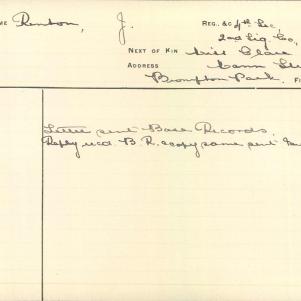 ME Renton, J. REG. &C 4th Sec
2nd Sig. Co,
NEXT OF KIN Miss Clare
ADDRESS Cann St
Brompton Park, FI
Letter sent Base Records,
Reply recd. B.R. & copy same sent